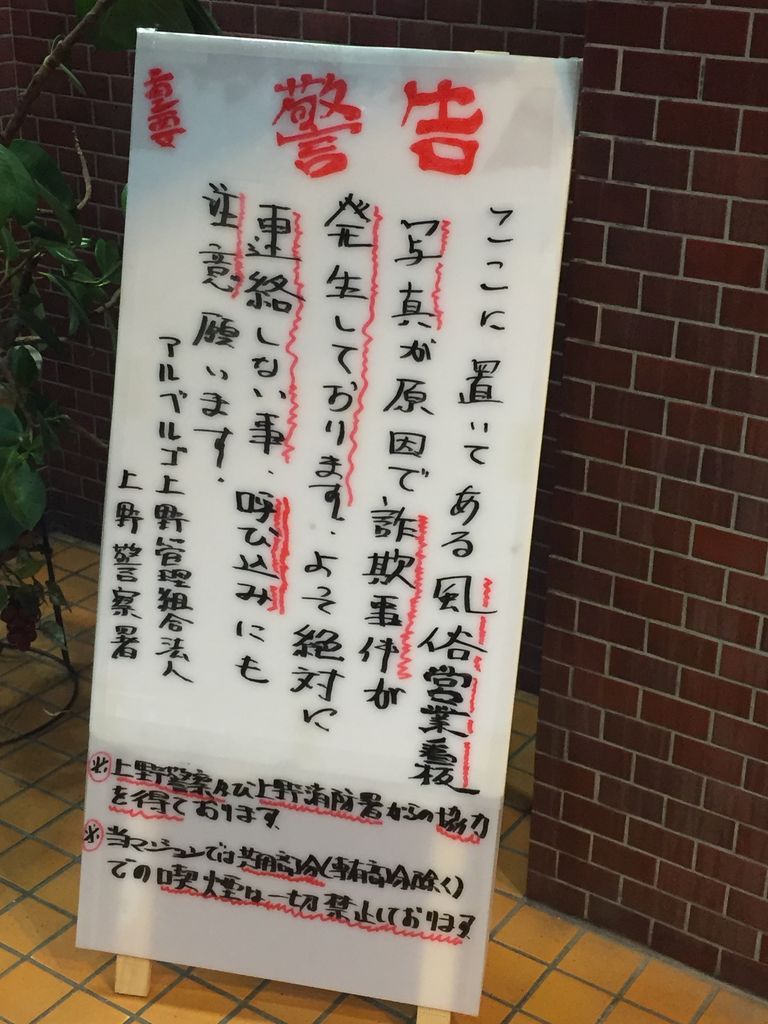 警告
重要
ここに置いてある風俗営業看板
写真が原因で、詐欺事件が
発生しております。よって絶対に
連絡しない事、呼び込みにも
注意願います。
アルベルゴ上野管理組合法人
上野警察署
※上野警察及び上野消防署からの協力
を得ております
※当マンションでは共用部分(専有部分除く)
での喫煙は一切禁止しております